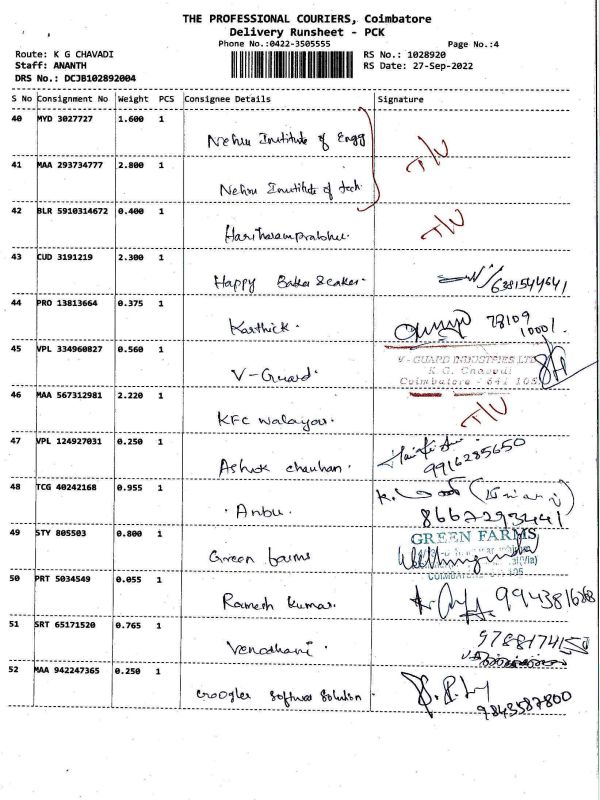 THE PROFESSIONAL COURIERS, Coimbatore
Delivery Runsheet - PCK
Phone No.:0422-3505555 Page No.:4
Route: K G CHAVADI RS No.: 1028920
Staff: ANANTH RS Date: 27-Sep-2022
DRS No.: DCJB102892004
S No Consignment No Weight PCS Consignee Details Signature
40 MYD 3027727 1.600 1
Nehru Institute of Engg
T/U
41 MAA 293734777 2.800 1
Nehru Institute of tech.
42 BLR 5910314672 0.400 1
Hariharamprabhu. T/U
43 CUD 3191219 2.300 1
Happy Baker &caker. 6381544641
44 PRO 13813664 0.375 1
Karthick. 78109
10001.
45 VPL 334960827 0.560 1
V-GUARD INDUSTRIES LTD
K.G. Chavadi
V-Guard. Coimbatore - 641 105
46 MAA 567312981 2.220 1
KFC Walayar. T/U
47 VPL 124927031 0.250 1
Ashok chauhan. 9916285650
48 TCG 40242168 0.955 1
Anbu. 8667293441.
49 STY 805503 0.800 1
GREEN FARMS
Green farms
(Via)
105
50 PRT 5034549 0.055 1
Ramesh Kumar.
51 SRT 65171520 0.765 1
Venodhani.
52 MAA 942247365 0.250 1
Croogler Software Solution.
9843587800